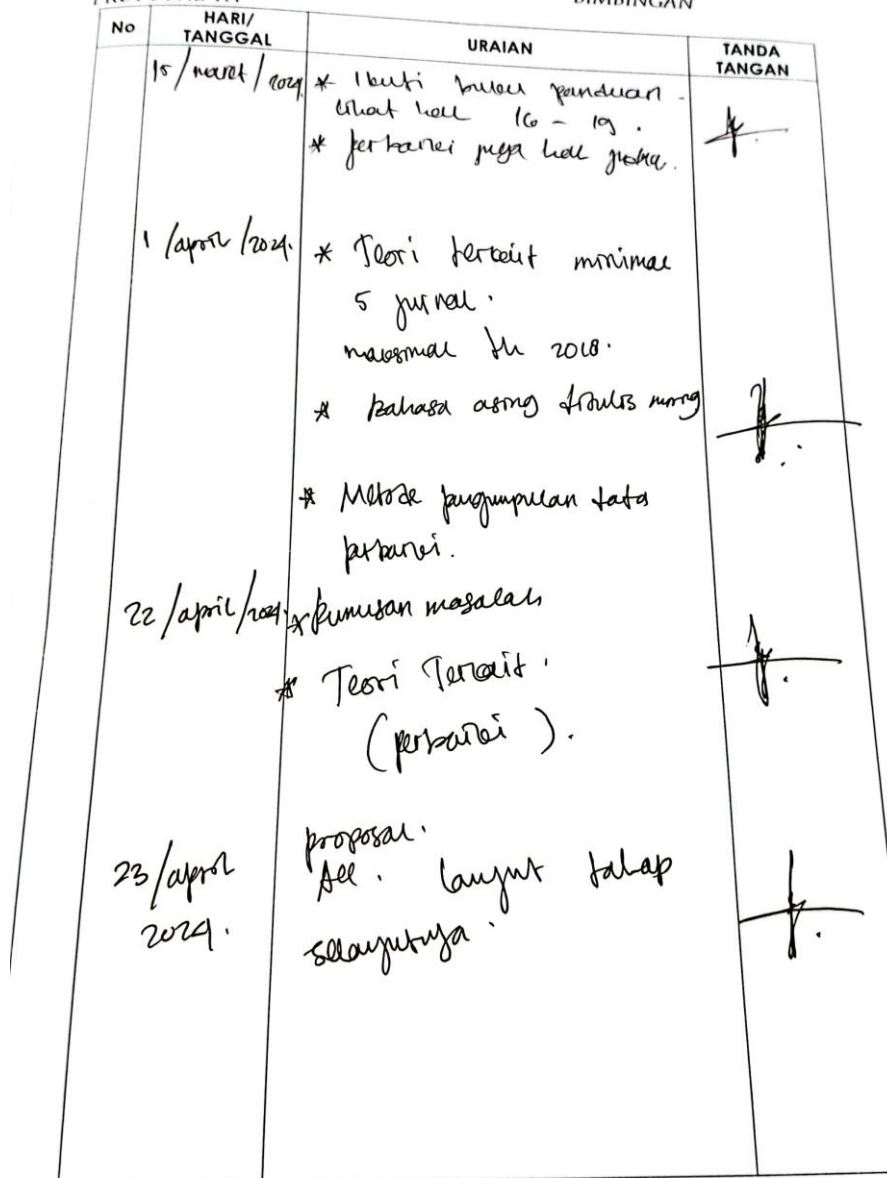 BIMBINGAN
No
HARI/
TANGGAL
URAIAN
TANDA
TANGAN
15/maret/2024
* Ikuti buku panduan.
Lihat hal 16 - 19.
* perbaiki juga hal
1/april/2024.
* Teori terkait minimal
5 jurnal.
maksimal th 2018.
* Bahasa asing ditulis miring
* Metode pengumpulan data
perbaiki.
22/april/2024.
* Rumusan masalah
* Teori Terkait.
(perbaiki).
23/april
2024.
proposal.
Acc. lanjut tahap
selanjutnya.